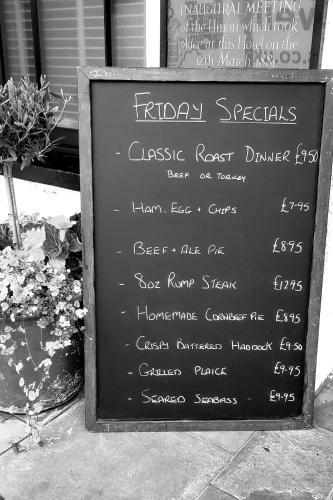 INAUGURAL MEETING
of the Union which took
place at this Hotel on the
12th March 1881
.co.
FRIDAY SPECIALS
- CLASSIC ROAST DINNER £9.50
BEEF OR TURKEY
- HAM, EGG + CHIPS £7.95
- BEEF + ALE PIE £8.95
- 8oz RUMP STEAK £12.95
- HOMEMADE CORNBEEF PIE £8.95
- CRISPY BATTERED HADDOCK £9.50
- GRILLED PLAICE £9.95
- SEARED SEABASS - £9.95